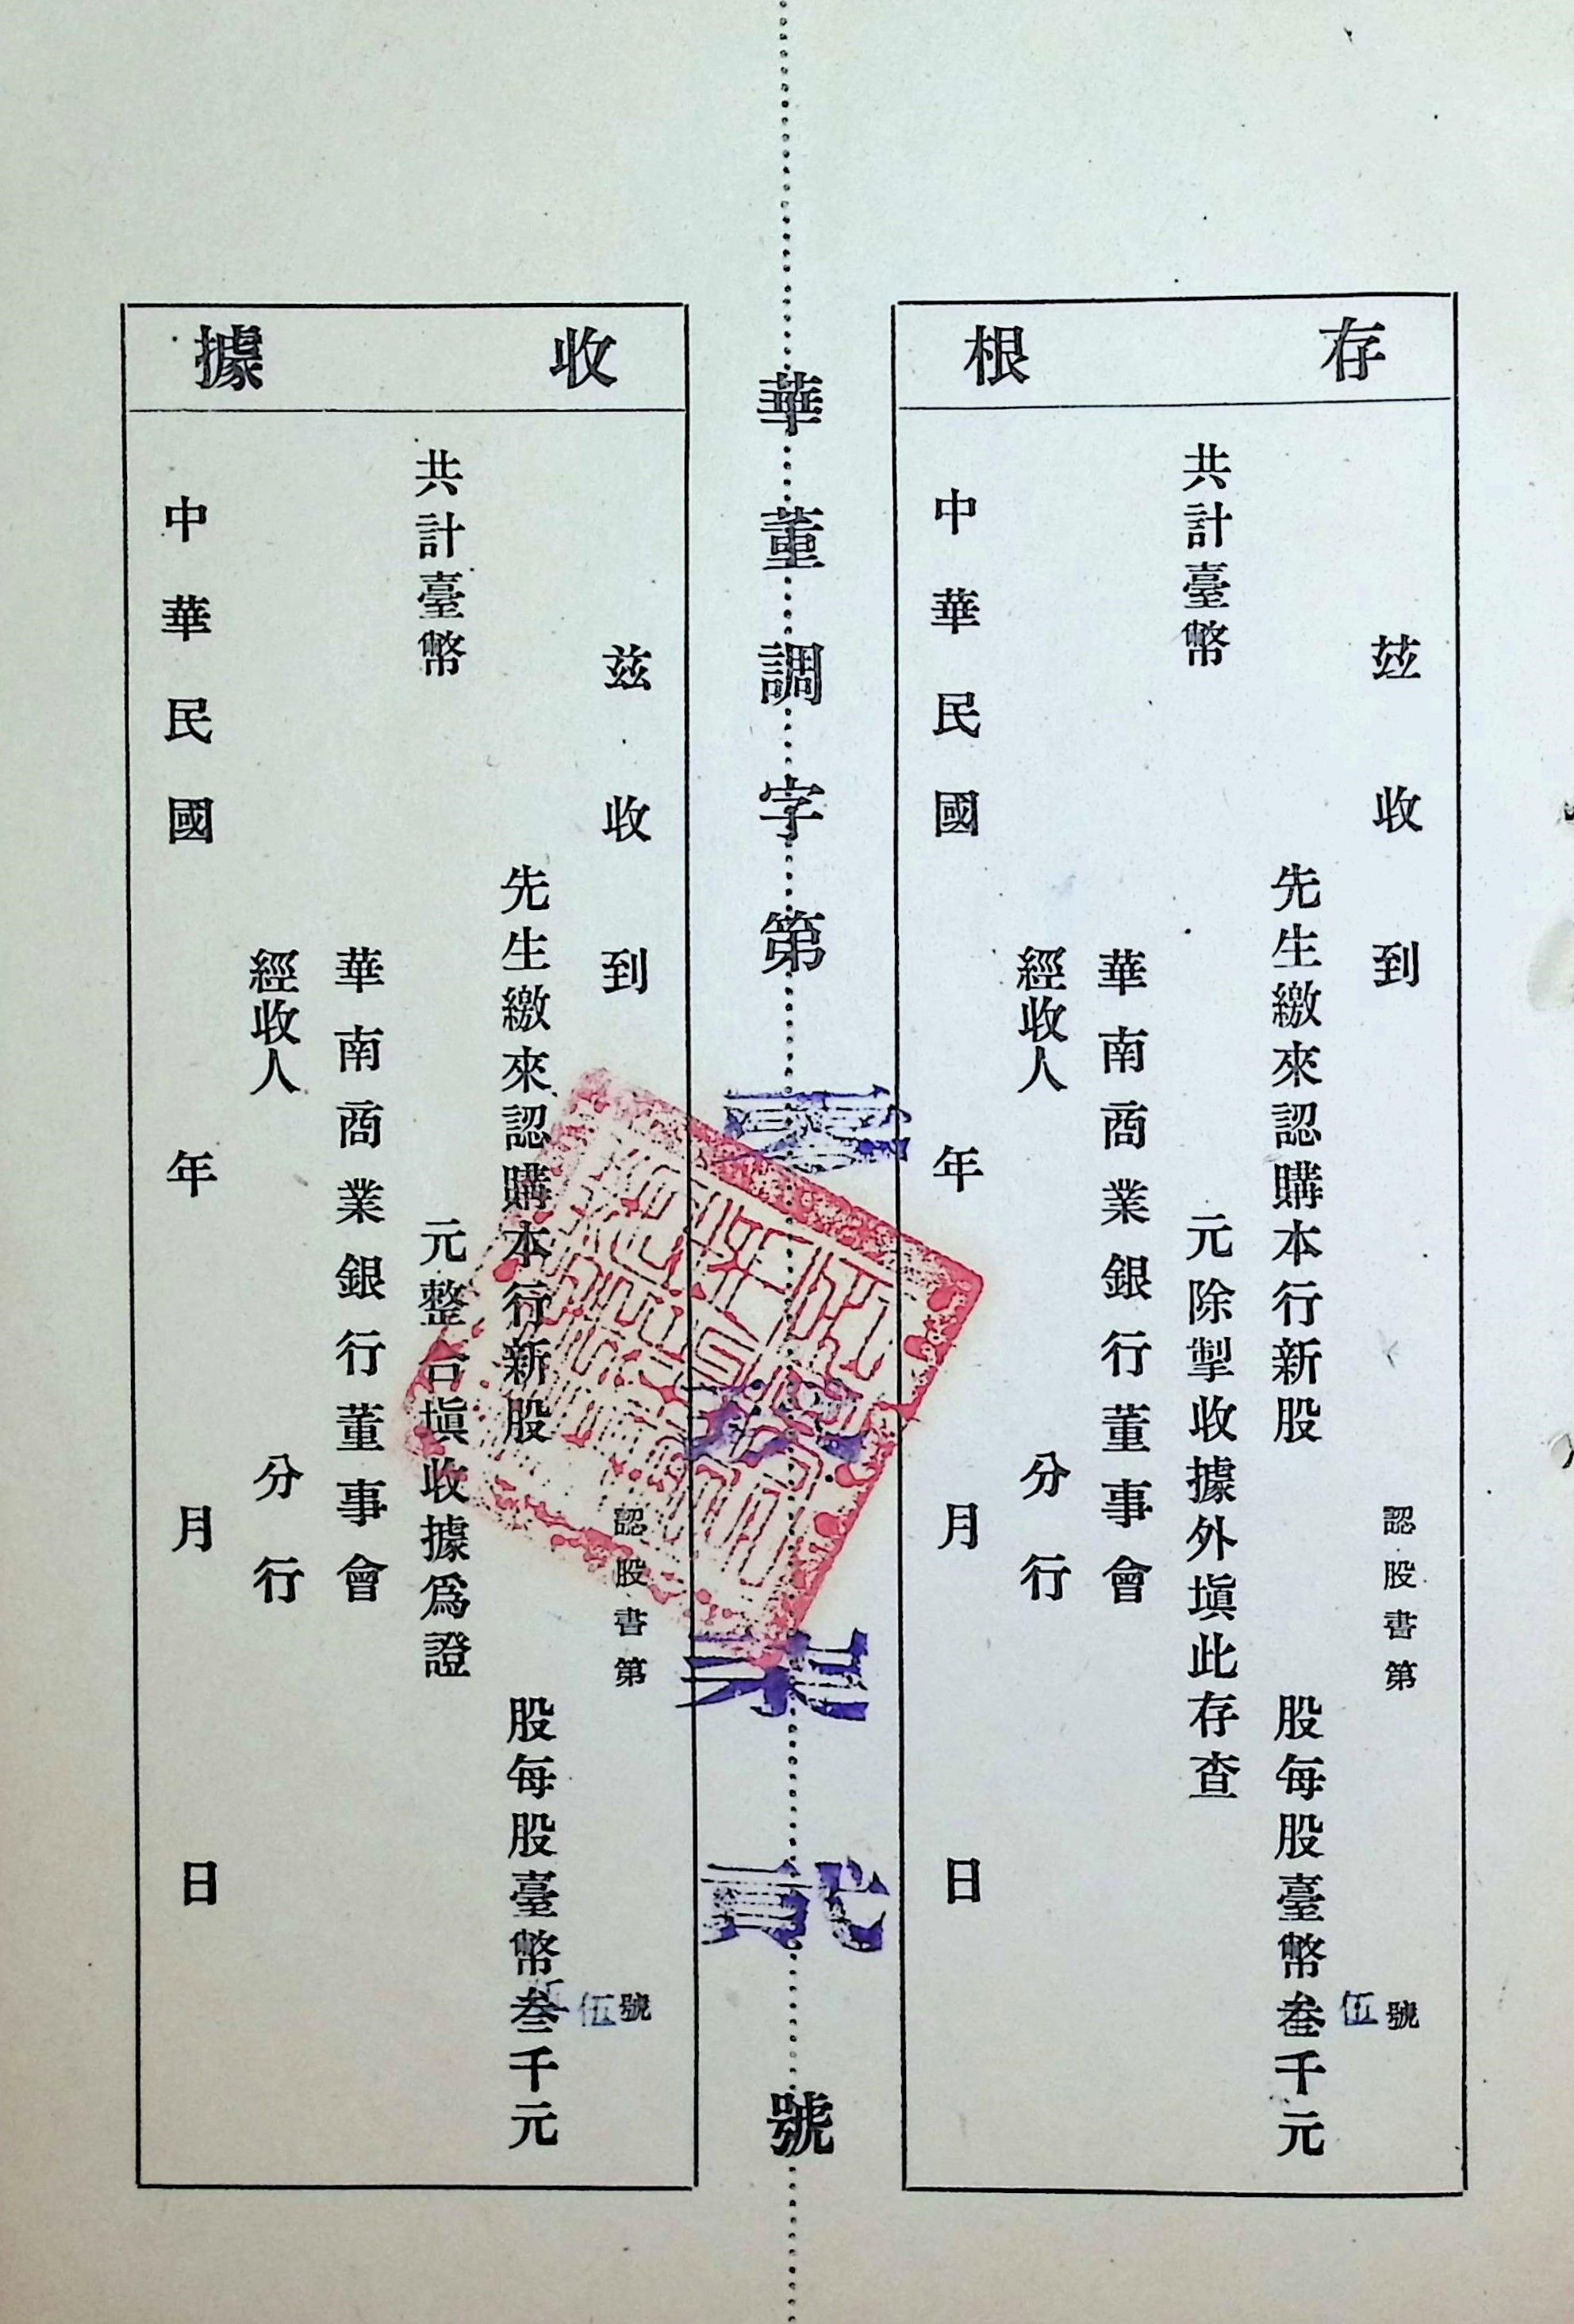 存根
茲收到 認股書第 伍號
先生繳來認購本行新股 股每股臺幣叁千元
共計臺幣 元除掣收據外塡此存查
華南商業銀行董事會
經收人 分行
中華民國 年 月 日
華董調字第 零 柒貳 號
收據
茲收到 認股書第 伍號
先生繳來認購本行新股 股每股臺幣叁千元
共計臺幣 元整合塡收據爲證
華南商業銀行董事會
經收人 分行
中華民國 年 月 日